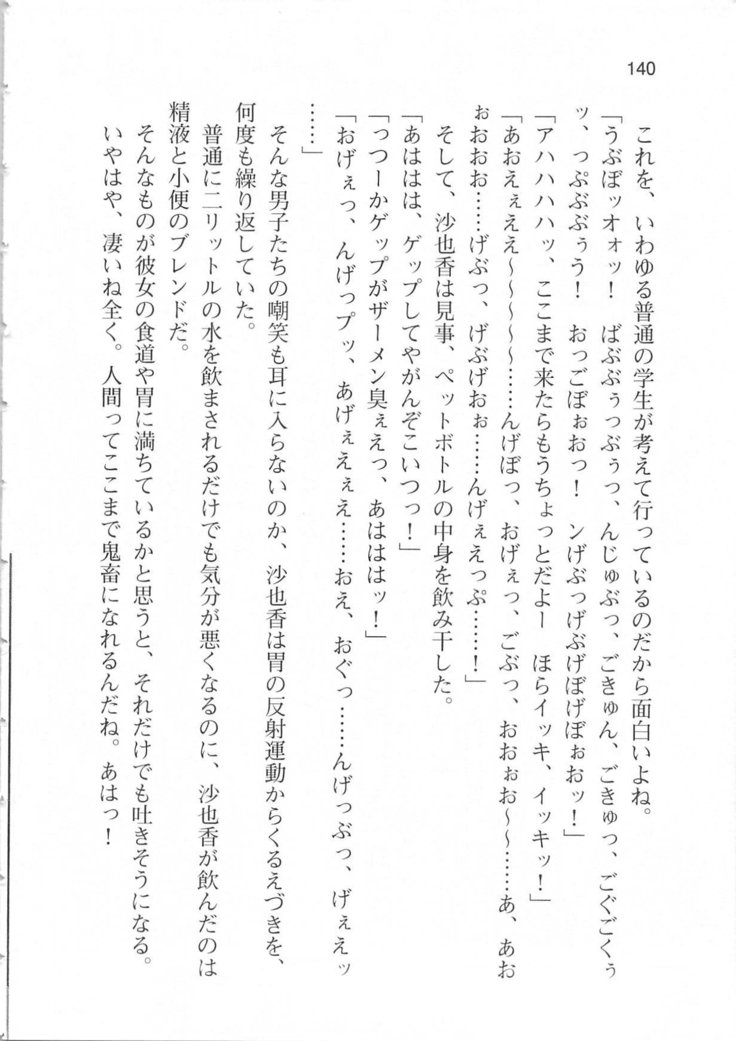 140
これを、いわゆる普通の学生が考えて行っているのだから面白いよね。
「うぶぽッオォッ！　ばぶぶぅっぶぅっ、んじゅぶっ、ごきゅん、ごきゅっ、ごぐごくぅ
ッ、っぷぶぶぅう！　おっごぼぉおっ！　ンげぶっげぶげぼげぼぉおッ！」
「アハハハハッ、ここまで来たらもうちょっとだよー　ほらイッキ、イッキッ！」
「あおえぇええ～～～～～……んげぼっ、おげぇっ、ごぶっ、おおぉお～～……あ、あお
ぉおおお……げぶっ、げぶげおぉ……んげぇえっぷ……！」
そして、沙也香は見事、ペットボトルの中身を飲み干した。
「あははは、ゲップしてやがんぞこいつっ！」
「っつーかゲップがザーメン臭ぇえっ、あはははッ！」
「おげぇっ、んげっプッ、あげぇえぇえ……おえ、おぐっ……んげっぶっ、げぇえッ
……」
そんな男子たちの嘲笑も耳に入らないのか、沙也香は胃の反射運動からくるえづきを、
何度も繰り返していた。
普通に二リットルの水を飲まされるだけでも気分が悪くなるのに、沙也香が飲んだのは
精液と小便のブレンドだ。
そんなものが彼女の食道や胃に満ちているかと思うと、それだけでも吐きそうになる。
いやはや、凄いね全く。人間ってここまで鬼畜になれるんだね。あはっ！